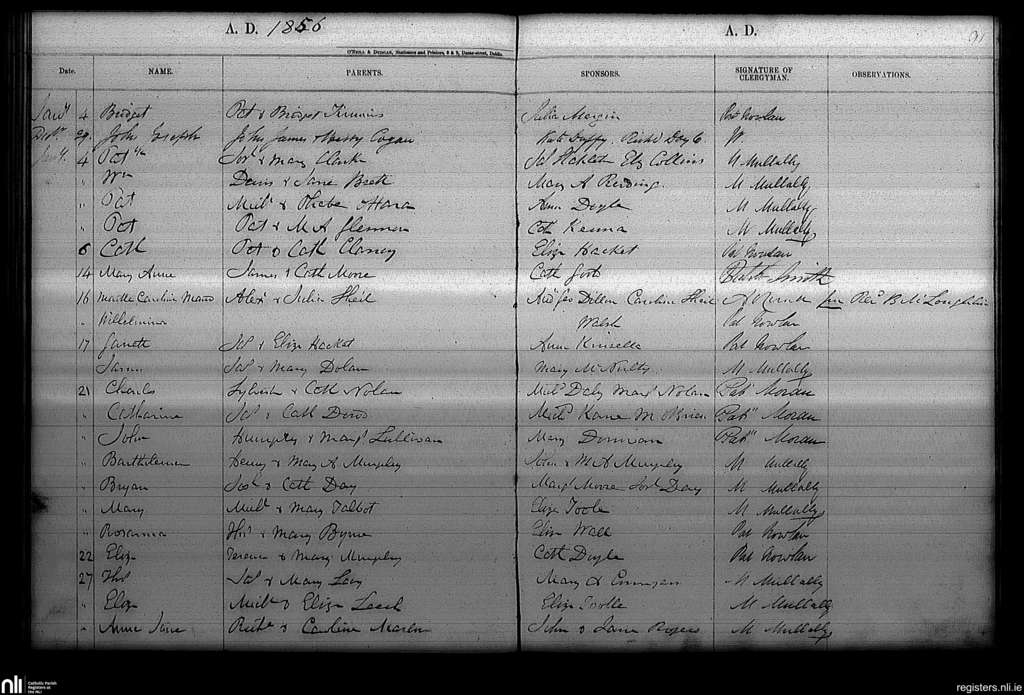 A. D. 1856 A. D. 91
O'Neill & Duggan, Stationers and Printers, Dame-street, Dublin
Date. NAME. PARENTS. SPONSORS. SIGNATURE OF CLERGYMAN. OBSERVATIONS.
Jany 4 Bridget Pat & Bridget Pat Nowlan
29 John Joseph John James & Mary Cogan Kate Duffy, Richd
Jany 4 Pat Josh & Mary Clarke Eliz Collins M Mullally
" Wm Denis & Jane Mary A Redding M Mullally
" Pat Michl & Phebe O'Hara Anne Doyle M Mullally
" Pat Pat & M A Glennon Cath Kenna M Mullally
6 Cath Pat & Cath Clancy Eliza Hacket Pat Nowlan
14 Mary Anne James & Cath Moore Cath Smith
16 Caroline Alexr & Julia Sheil Dillon Caroline Sheil for Revd B McLoughlin
" Wilhelmina Walsh Pat Nowlan
17 Jas & Eliza Hacket Anne Kinsella Pat Nowlan
James Jas & Mary Dolan Mary McNulty M Mullally
21 Charles Sylvester & Cath Nolan Michl Daly Margt Nolan Patk Moran
" Catharine Jas & Cath Michl Kane M O'Brien Patk Moran
" John Humphry & Margt Sullivan Mary Patk Moran
" Henry & Mary A Murphy John & M A Murphy M Mullally
" Bryan Josh & Cath Day Margt Moore Josh Day M Mullally
" Mary Michl & Mary Talbot Eliza Toole M Mullally
" Rosanna Thos & Mary Byrne Eliza Wall Pat Nowlan
22 Eliza Terence & Mary Murphy Cath Doyle Pat Nowlan
27 Thos Jas & Mary Mary A M Mullally
" Eliza Michl & Eliza Eliza Toole M Mullally
" Anne Jane & Caroline John & Jane Rogers M Mullally
nli Catholic Parish Registers at the NLI
registers.nli.ie